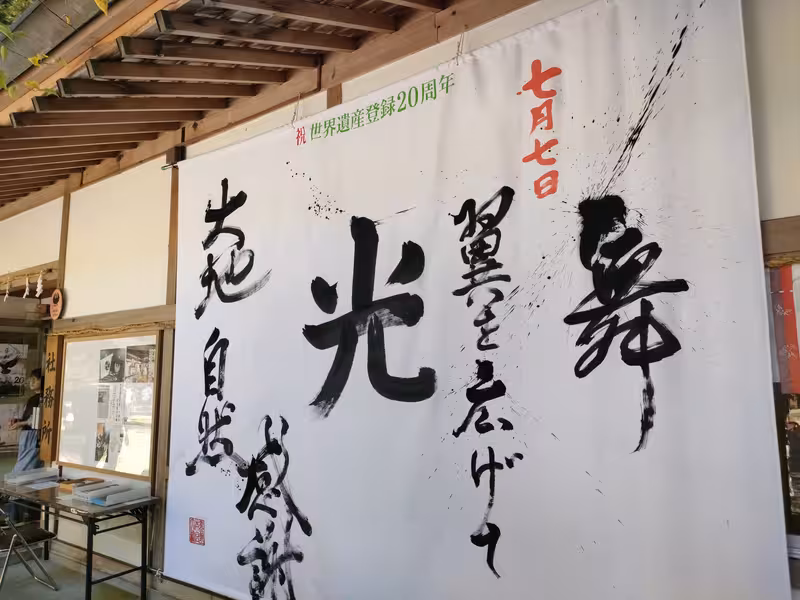 祝 世界遺産登録20周年
七月七日
舞
翼を広げて
光
大地
自然
に感謝
社務所